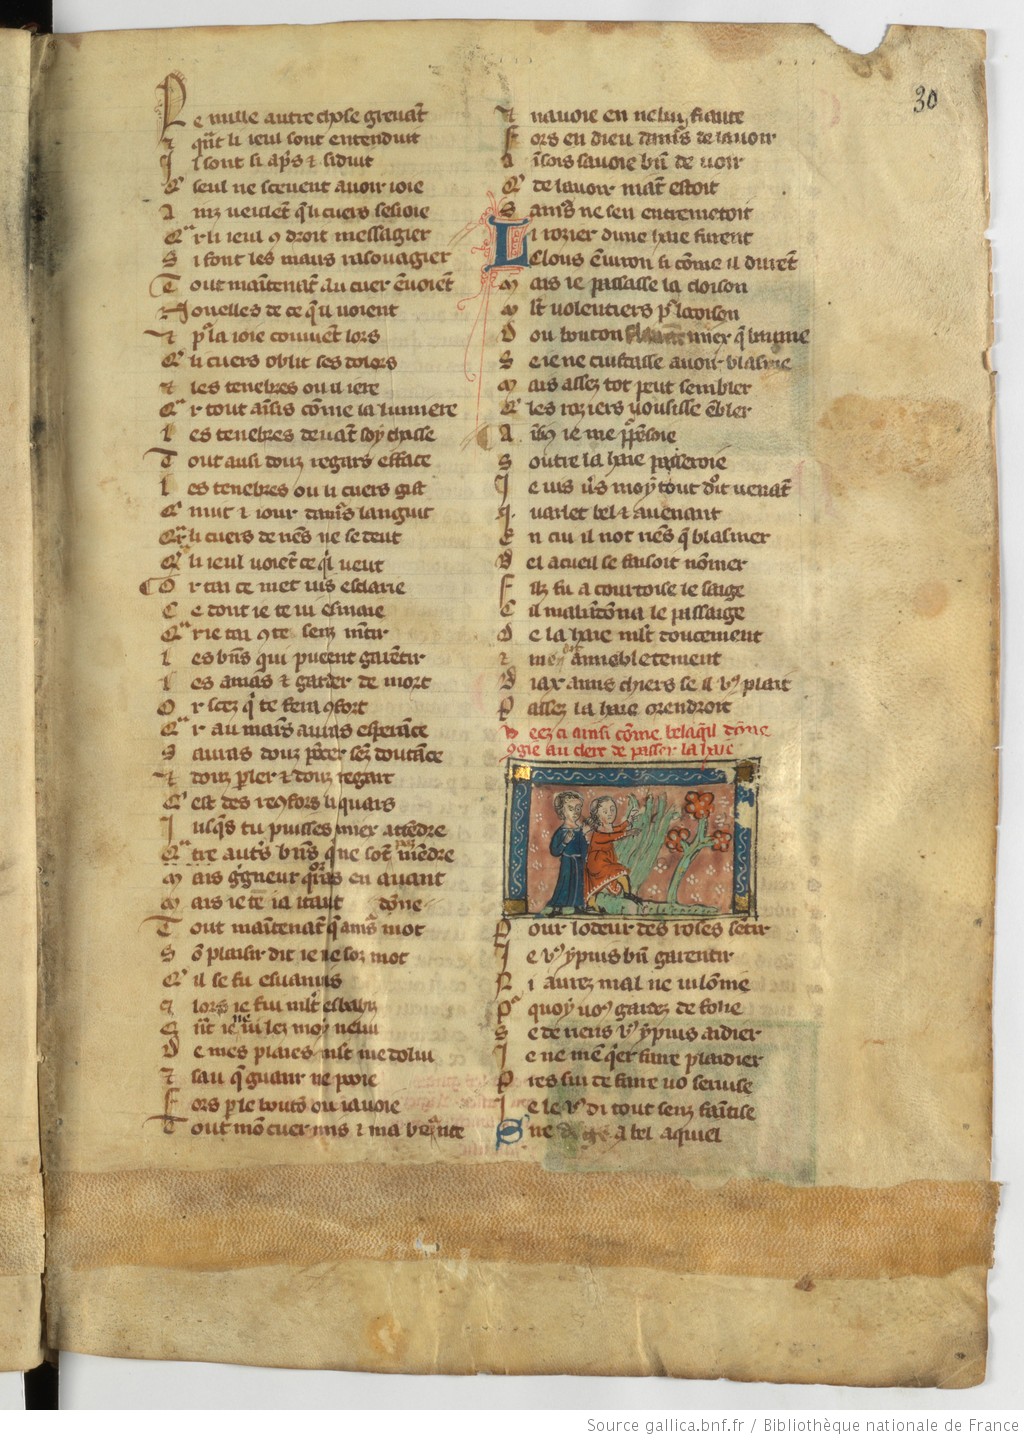 30
Ne nulle autre chose grevāt
⁊ qñt li ieul sont entenduit
Il sont si ap̄s ⁊ siduit
Q̄ seul ne scevent avoir ioie
Ainz veulēt q̄ li cuers sesioie
Q̄r li ieul ꝯ droit messagier
Si font les maus rasouagier
Tout maītenāt au cuer ēvoiēt
Novelles de ce q̄ il voient
⁊ p̄ la ioie couvient lors
Q̄ li cuers oblit ses dolors
⁊ les tenebres ou il iere
Q̄r tout aīsis cōme la lumiere
Les tenebres devāt soy chasse
Tout ausi douz regars efface
Les tenebres ou li cuers gist
Q̄ nuit ⁊ iour languit
Q̄r li cuers de nēs ne se deut
Q̄ li ieul voiēt ce q̄l veut
Or tai ce met vis esclarie
Ce dont ie te vi esmaie
Q̄r ie tai ꝯte senz mētir
Les bñs qui pueent garētir
Les amās ⁊ garder de mort
Or scez q̄ te fera ꝯfort
Q̄r au mains auras esperāce
Sauras douz pēcer sēz doutāce
⁊ douz p̄ler ⁊ douz regart
Cest des reꝯfors li quars
Iusq̄s tu puisses mier attēdre
Q̄tre autꝭs bñs que sōt mēdre
Mais en avant
Mais ie te ia itant dōne
Tout maītenāt q̄ amꝭs mot
Sō plaisir dit ie ne soz mot
Q̄ il se fu esvanuis
⁊ lors ie fui mlt esbahiz
Q̄nt ie lez moy nelui
De mes plaies mlt me dolui
⁊ sau q̄ guarir ne pooie
Fors p̄ le boutō ou iavoie
Tout mō cuer mis ⁊ ma beāce
⁊ navoie en nelui fiance
Fors en dieu damꝭs de lavoir
Aīsois savoie bñ de voir
Q̄ de lavoir nāt estoit
Samꝭs ne sen entremetoit
Li rozier dune haie furent
Clous ēviron si cōme il durēt
Mais ie passasse la cloison
Mlt volentiers p̄ lacoison
Dou bouton mier q̄ baume
Se ie ne cuidasse avoir blasme
Mais assez tot peut sembler
Q̄ les roziers vousisse ēbler
Aīsis ie me ppēsoie
Soutre la haie passeroie
Ie vis vꝭs moy tout dōit venāt
I. varlet bel ⁊ avenant
En cui il not nēs q̄ blasmer
Bel acueil se faisoit nōmer
Filz fu a courtoise le saige
Cil mabādōna le passaige
De la haie mlt doucement
⁊ me amiebletement
Biax amis chiers se il vꝰ plait
Passez la haie orendroit
Veez ci ainsi cōme belaq̄il dōne
ꝯgie au clerc de passer la haie
Pour lodeur des roses sētir
Ie vꝰ ypuis bñ garentir
Ni aurez mal ne vilōnie
P̄ quoy voꝰ gardez de folie
Se de riens vꝰ ypuis aidier
Ie ne mē q̄er faire plaidier
Pres sui de faire vo servise
Ie le vꝰ di tout senz faītise
Sire a bel aquiel
Source gallica.bnf.fr / Bibliothèque nationale de France